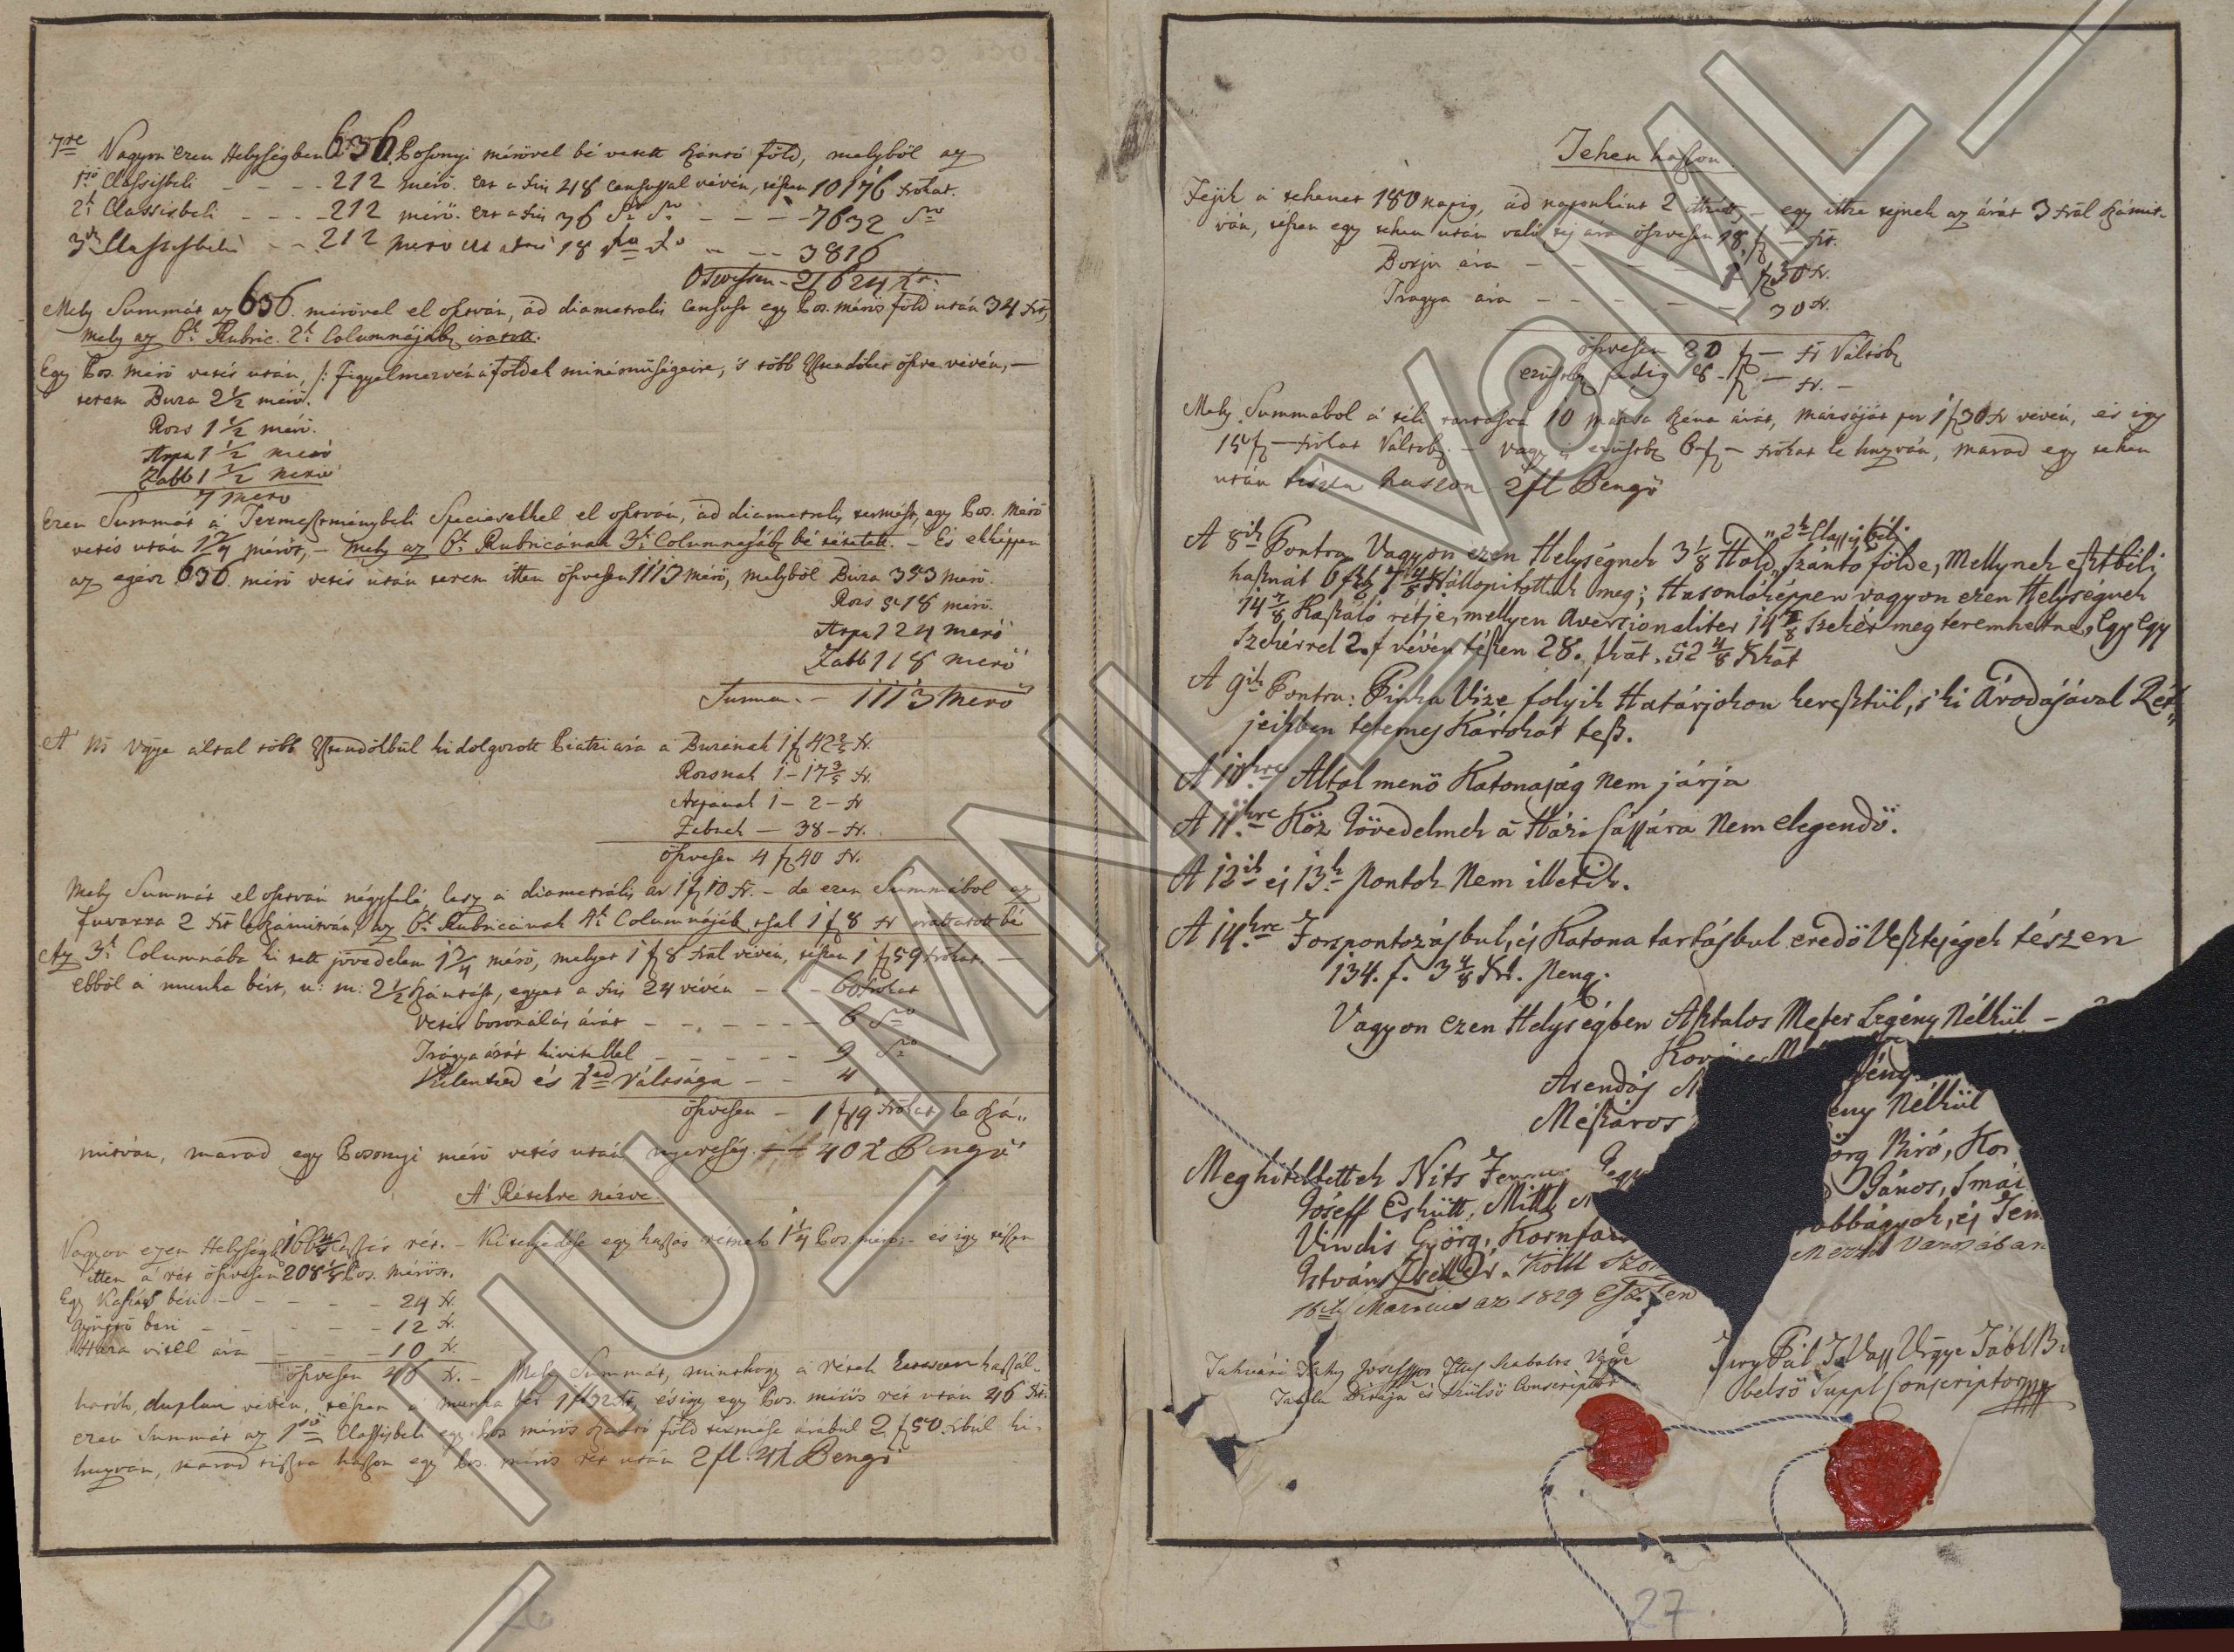 7re Vagyon ezen Helységben 636 Posonyi mérővel bé vetett szántó föld, melyből az
1ső Classisbeli - - - - 212 mérő. ezt a fni 48 censussal vévén, tészen 10176 krokat.
2k Classisbeli - - - - 212 mérő. ezt a fni 36 dto dto - - - - 7632 dto
3k Classisbeli - - 212 mérő ezt a fni 18 dto dto - - - 3816
Öszvessen - 21624 kr.
Mely Summát az 636. mérővel el osztván, ád diametralis censust egy Pos. mérős föld után 34 krt,
mely az 6k Rubric. 2k Columnájáb iratott.
Egy Pos. mérő vetés után, /: figyelmezvén a földek minéműségeire, 's több Esztendőket öszve vévén, —
terem Buza 2 1/2 mérő.
Rozs 1 1/2 mérő.
Árpa 1 1/2 mérő
Zabb 1 1/2 mérő
7 mérő
Ezen Summát a Termesztménybeli Speciesekkel el osztván, ád diametralis termést, egy Pos. mérő
vetés után 1 3/4 mérőt, — mely az 6k Rubricának 3k Columnájáb bé tétetett. — És ekképpen
az egész 636 mérő vetés után terem itten öszvesen 1113 mérő, melyből Búza 353 mérő.
Rozs 518 mérő.
Árpa 124 mérő
Zabb 118 mérő
Summa - - 1113 mérő
A Ns Vgye által több Esztendőkbül kidolgozott Piatzi ára a Buzának 1 f 42 2/5 kr.
Rozsnak 1 - 17 3/5 kr.
Árpának 1 - 2 - kr
Zabnak — 38 - kr.
öszvesen 4 f 40 kr.
Mely Summát el osztván négyfelé, lesz a diametralis ár 1 f 10 kr. — de ezen Summából az
fuvarra 2 krt leszámitván, az 6k Rubricának 4k Columnájáb csak 1 f 8 kr irattatott bé
Az 3k Columnába ki tett jövedelem 1 3/4 mérő, melyet 1 f 8 kral vévén, tészen 1 f 59 krokat. —
ebből a munka bért, u: m: 2 1/2 szántást, egyet a fni 24 vévén - - - 60 krokat
Vetés boronálás árát - - - - - - 6 dto
Trágya árát kivitellel - - - - - 9 dto
Kilentzed és Tized váltsága - - 4
öszvesen - 1 f 19 krokat le szá„
mitván, marad egy Posonyi mérő vetés után nyereség. — 40 x Pengő
A' Rétekre nézve
Vagyon ezen Helységb 166 4/8 kaszás rét. - Kiterjedése egy kaszás rétnek 1 1/4 Pos. mérő: - és igy tészen
itten a rét öszvesen 208 1/8 Pos. mérőst.
Egy Kaszás béri - - - - - 24 kr.
Gyűjtő béri - - - - - 12 kr.
Haza vitell ára - - - - 10 kr.
öszvesen 46 kr. - Mely Summát, minthogy a rétek kaszál„
hatók, duplán vévén, tészen a munka bér 1 f 32 kr, és igy egy Pos. mérős rét után 46 kr.
ezen Summát az 1ső Classisbeli egy Pos mérős szántó föld termése árábul 2 f 50 krbúl ki„
huzván, marad tiszta haszon egy Pos. mérős rét után 2 fl. 4 x Pengő
Tehen haszon
Fejik a tehenet 180 napig, ád naponként 2 ittzét, - egy ittze tejnek az árát 3 král számit„
ván, tészen egy tehen után való tej ára öszvesen 18 f - kr.
Borju ára - - - - - 1 f 30 kr.
Tragya ára - - - - - 30 kr.
öszvesen 20 f — kr Váltób
ezüstb pedig 8 f — kr. -
Mely Summából a téli tartásra 10 mázsa széna árát, mázsáját per 1 f 30 kr vévén, és igy
15 f — krokat Váltób. — vagy is ezüstb 6 f - krokat le huzván, marad egy tehen
után tiszta haszon 2 fl Pengő
A 8ik Pontra Vagyon ezen Helységnek 3 1/8 Hold „2k Classisbéli Szántó földe, Mellynek esztbéli
hasznát állopitottuk meg; Hasonlóképpen vagyon ezen Helységnek
14 Kaszáló rétje, mellyen Aversionaliter 14 Szekér megteremhetne, Egy Egy
Szekérrel 2. f vévén tészen 28. fkat, 52 4/8 krkat
A 9ik Pontra: Pinka Vize folyik Határjokon keresztül, s' ki Árodásával Rét„
jeikben tetemes Károkat tesz.
A 10kre Által menő Katonaság Nem járja
A 11kre Köz Jövedelmek a Házi Cassára Nem elegendő.
A 12ik és 13k pontok Nem illetik.
A 14kre Forspontozásbul, és Katona tartásbul eredő Vesztességek tészen
134. f. 3 4/8 kr. peng.
Vagyon ezen Helységben Asztalos Mester Legény Nélkül -
Árendás
Mészáros ény Nélkül
Meghiteltettek Nits örg Biró, Ko
Jóseff Eskütt, Mittl János, Smái
Vindis Györg, Kornfa obbágyok, és
István Zsellér. Költ Mező Városában
16ik Martius az 1829 Eszten
Tabula Birája és Külső Conscriptor
Pál T. Vass Vrgye Tábl B
belső Suppl Conscriptor
27.
HU_MNL_VaML_